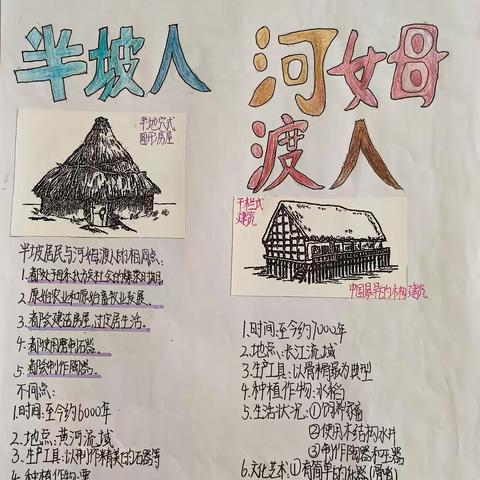 半坡人
半地穴式
圆形房屋
半坡居民与河姆渡人的相同点：
1.都处于母系氏族社会的繁荣时期。
2.原始农业和原始畜牧业发展。
3.都会建造房屋，过定居生活。
4.都使用磨制石器。
5.都会制作陶器。
不同点：
1.时间：至今约6000年
2.地点：黄河流域
3.生产工具：以制作精美的石器等
4.种植作物：粟
河姆
渡人
干栏式
建筑
1.时间：至今约7000年
2.地点：长江流域
3.生产工具：以骨耜最为典型
4.种植作物：水稻
5.生活状况：①饲养家畜
②使用木结构水井
③制作陶器和玉器
6.文化艺术：①有简单的乐器（骨哨）